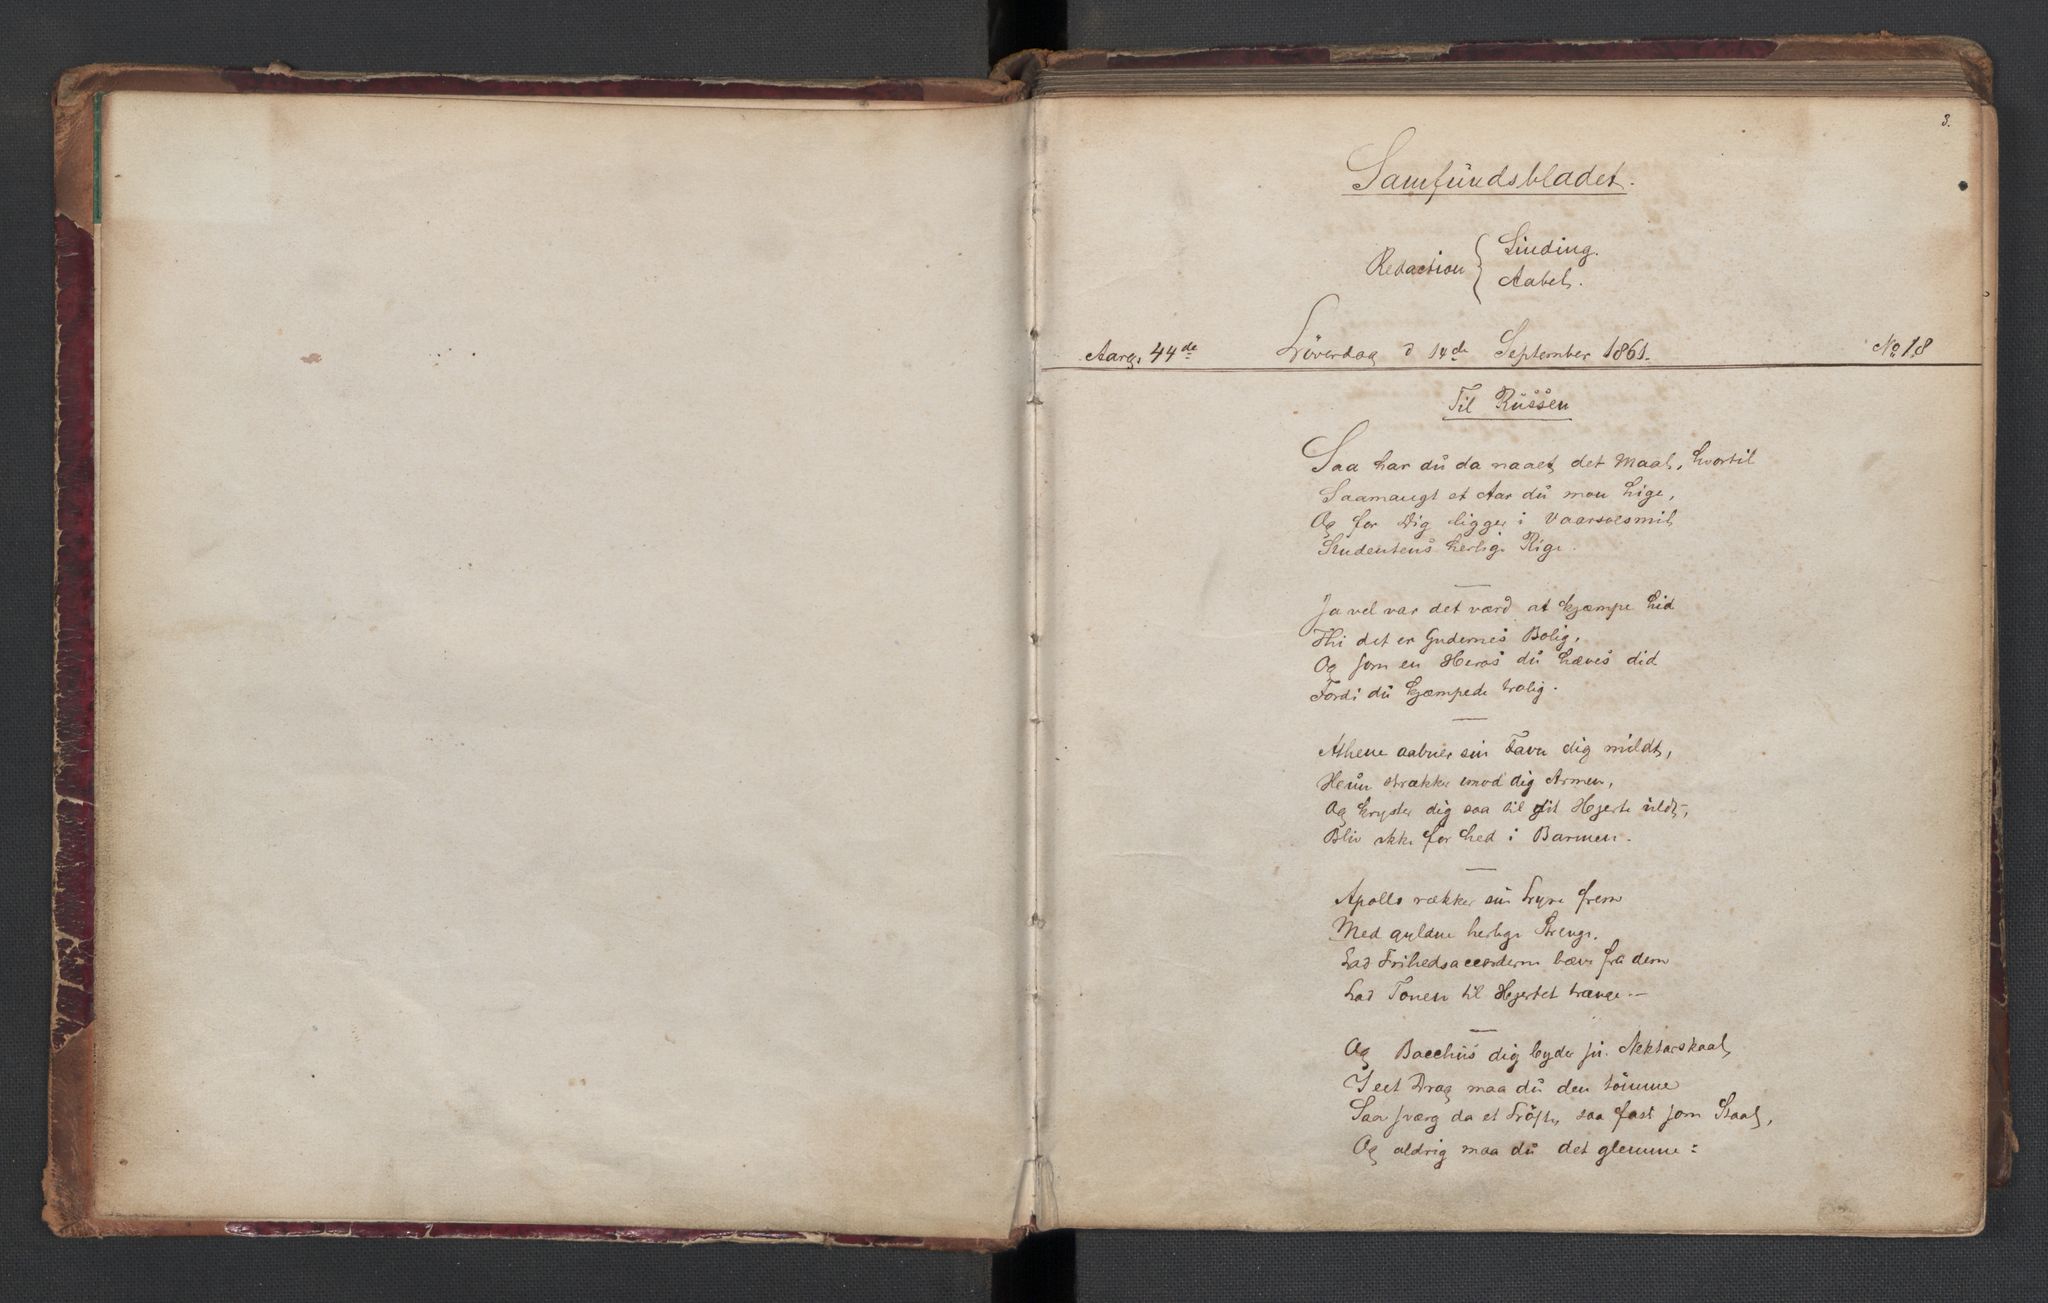 3.
Samfundsbladet.
Redaction { Sinding.
Aabel.
Aarg. 44de Löverdag d 14de September 1861. No 18
Til Russen
Saa har du da naaet det Maal, hvortil
Saamangt et Aar du mon hige,
Og for Dig ligger i Vaarsolsmil
Studentens herlige Rige.
Ja vel var det værd at kjæmpe hid
Thi det er Gudernes Bolig,
Og som en Heros du hæves did
Fordi du kjæmpede trolig.
Athene aabner sin Favn dig mildt,
Hun strækker imod dig Armen,
Og kryster dig saa til sit Hjerte vildt,
Bliv ikke for hed i Barmen.
Apollo rækker sin Lyre frem
Med gyldne herlige Strenge.
Lad Frihedsaccorderne bæve fra dem
Lad Tonen til Hjertet trænge. —
Og Bacchus dig byder sin Nektarskaal
I eet Drag maa du den tömme
Saa sværg da et Löfte, saa fast som Staal,
Og aldrig maa du det glemme: